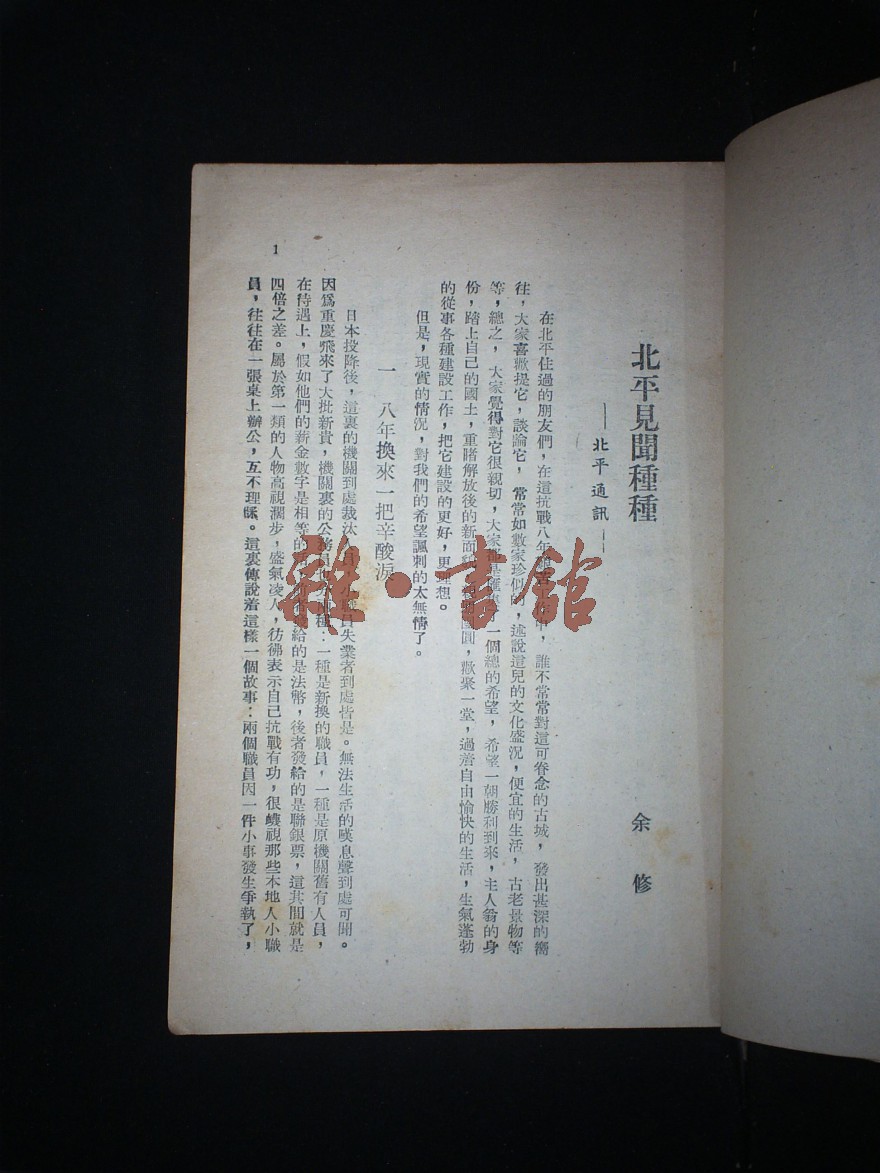 北平見聞種種
——北平通訊——
余修
在北平住過的朋友們，在這抗戰八年 中，誰不常常對這可眷念的古城，發出甚深的嚮
往，大家喜歡提它，談論它，常常如數家珍似的，述說這兒的文化盛況，便宜的生活，古老景物等
等，總之，大家覺得對它很親切，大家 一個總的希望，希望一朝勝利到來，主人翁的身
份，踏上自己的國土，重睹解放後的新面 團圓，歡聚一堂，過着自由愉快的生活，生氣蓬勃
的從事各種建設工作，把它建設的更好，更理想。
但是，現實的情況，對我們的希望諷刺的太無情了。
一 八年換來一把辛酸淚
日本投降後，這裏的機關到處裁汰 員失業者到處皆是。無法生活的嘆息聲到處可聞。
因爲重慶飛來了大批新貴，機關裏的公務員 種：一種是新換的職員，一種是原機關舊有人員，
在待遇上，假如他們的薪金數字是相等的 給的是法幣，後者發給的是聯銀票，這其間就是
四倍之差。屬於第一類的人物高視濶步，盛氣凌人，彷彿表示自己抗戰有功，很蔑視那些本地人小職
員，往往在一張桌上辦公，互不理睬。這裏傳說着這樣一個故事：兩個職員因一件小事發生爭執了，
1
雜·書館